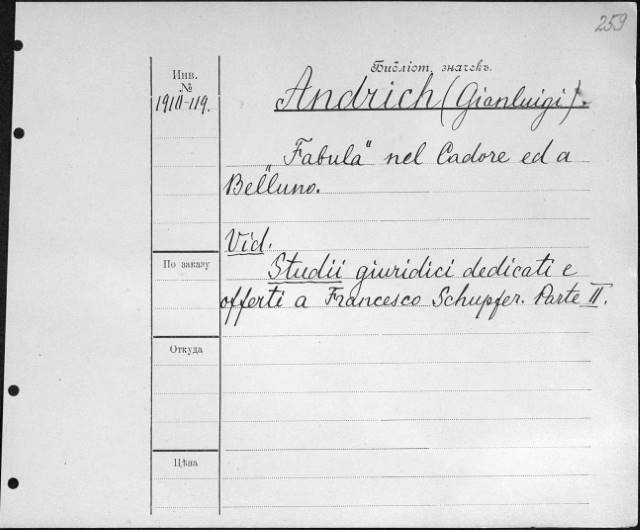 259
Библіот. значекъ.
Инв.
№
Andrich (Gianluigi).
„Fabula“ nel Cadore ed a
Belluno.
Vid.
По заказу
Studii giuridici dedicati e
offerti a Francesco Schupfer. Parte II.
Откуда
Цѣна